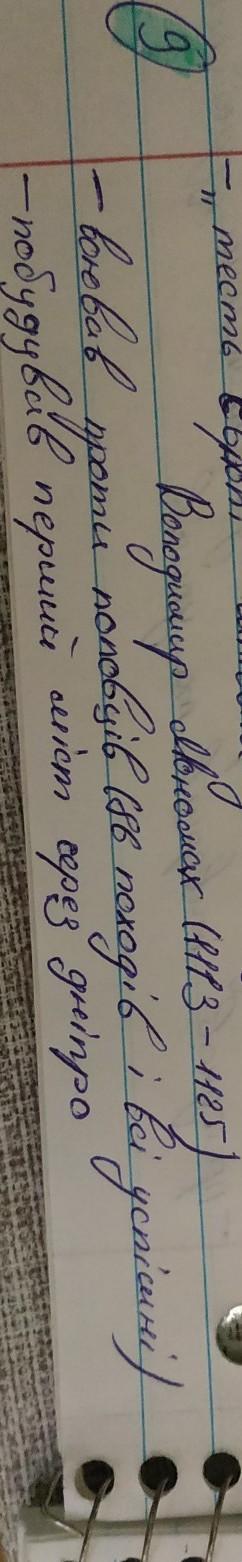 - „тесть
9 Володимир Мономах (1113 - 1125)
- воював проти половців (83 походів і всі успішні)
- побудував перший міст через дніпро